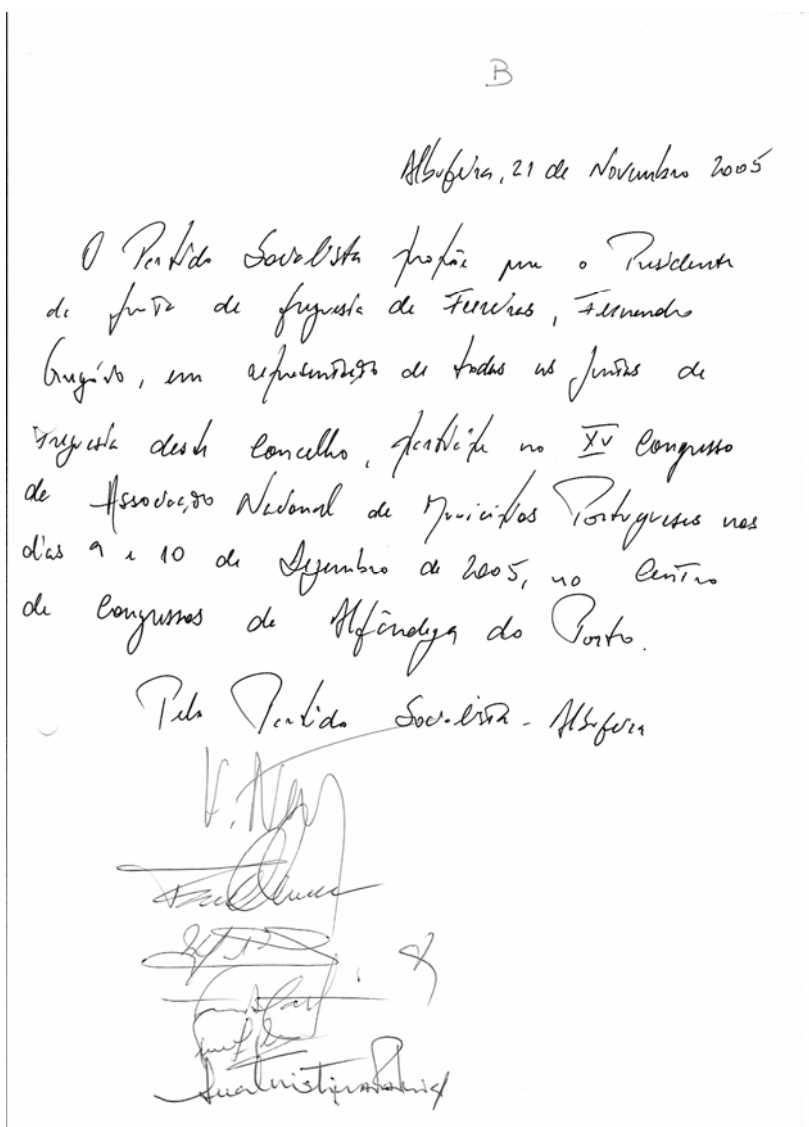 B
Albufeira, 21 de Novembro 2005
O Partido Socialista propõe que o Presidente
da Junta de freguesia de Ferreiras, Fernando
Gregório, em representação de todas as Juntas de
Freguesia deste Concelho, participe no XV Congresso
da Associação Nacional de Municípios Portugueses nos
dias 9 e 10 de Dezembro de 2005, no Centro
de Congressos da Alfândega do Porto.
Pelo Partido Socialista - Albufeira